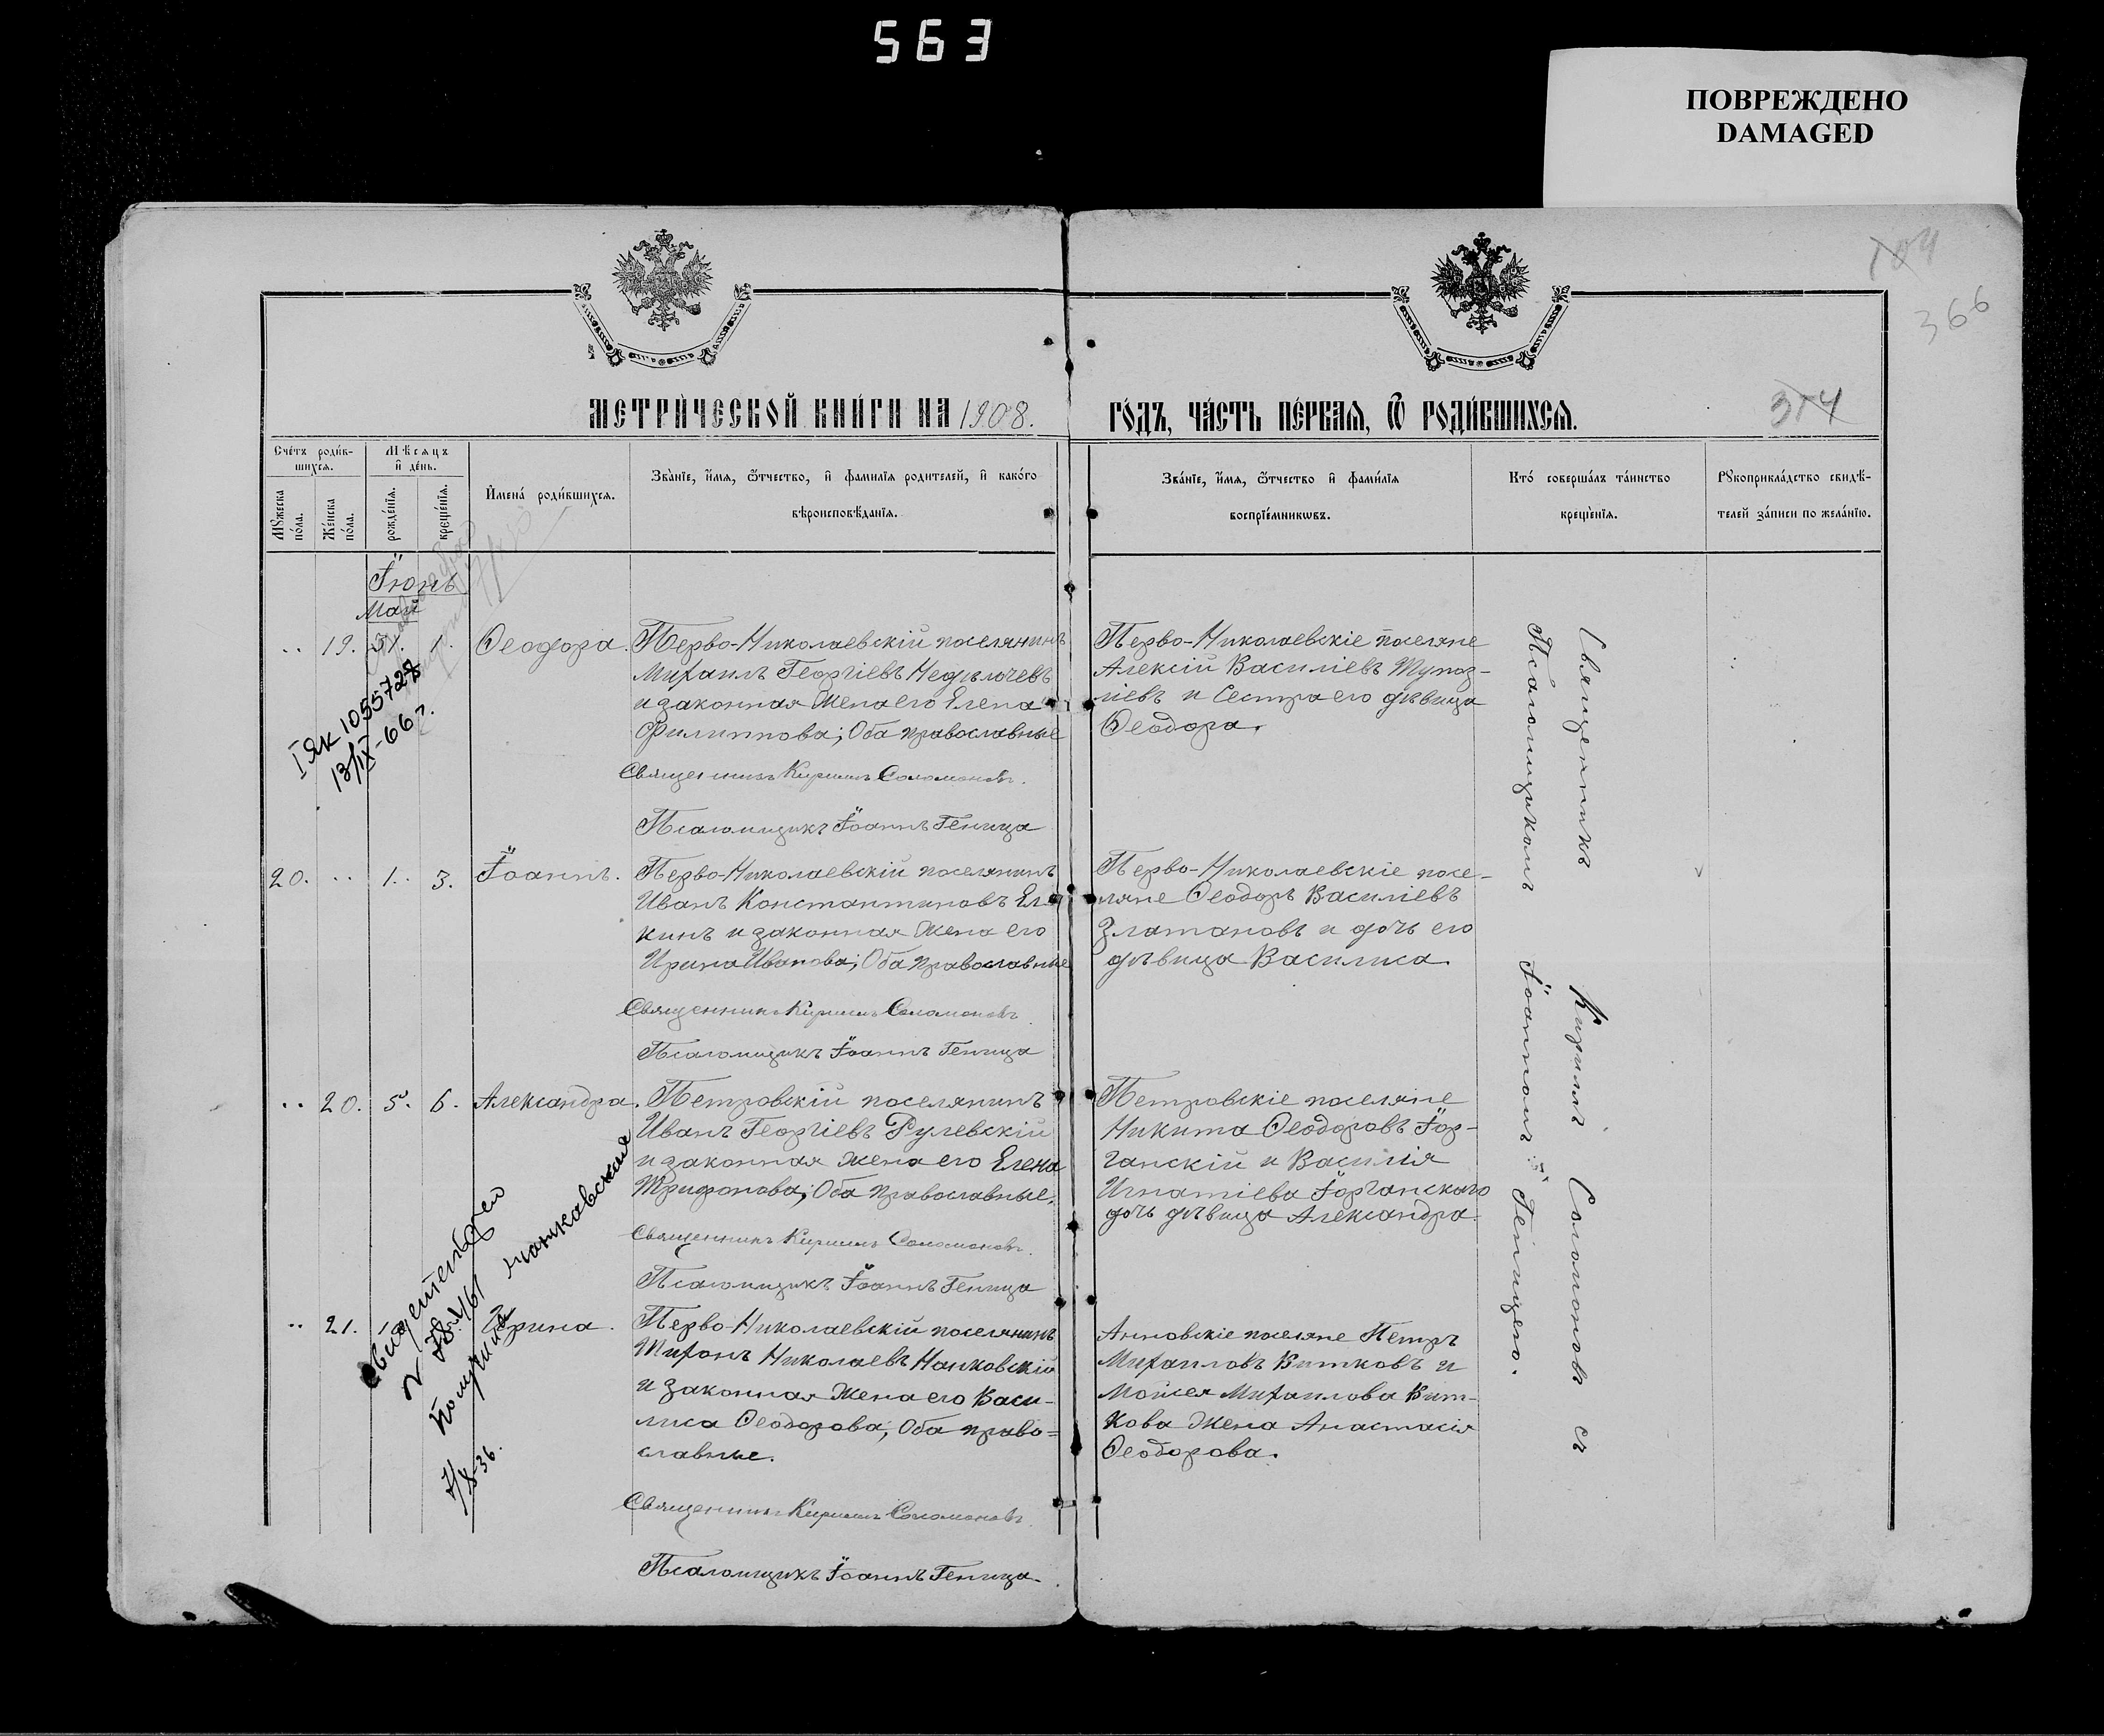 563
ПОВРЕЖДЕНО
DAMAGED
104
366
МЕТРИ́ЧЕСКОЙ КНИ́ГИ НА 1908.
ГО́ДЪ, ЧА́СТЬ ПЕ́РВАЯ, Ѿ РОДИ́ВШИХСЯ.
374
Сче́тъ роди́в-
шихся.
Мѣ́сяцъ
и҆ де́нь.
И҆мена́ роди́вшихся.
Зва́нїе, и҆́мя, ѻ҆́тчество, и҆ фами́лїя роди́телей, и҆ како́го
вѣроисповѣ́данїя.
Зва́нїе, и҆́мя, ѻ҆́тчество и҆ фами́лїя
воспрїе́мниковъ.
Кто́ соверша́лъ та́инство
креще́нїя.
Рꙋкоприкла́дство свидѣ́-
телей за́писи по жела́нїю.
Мꙋ́жеска по́ла.
Же́нска по́ла.
рожде́нїя.
креще́нїя.
Іюнь
Май
.. 19. 31. 1. Ѳеодора.
Перво-Николаевскій поселянинъ
Михаилъ Георгіевъ Недѣлчевъ
и законная жена его Елена
Филиппова; Оба православные
Священникъ Кириллъ Соломоновъ.
Псаломщикъ Іоаннъ Геница
Перво-Николаевскіе поселяне
Алексій Василіевъ Тупоз-
ліевъ и сестра его дѣвица
Ѳеодора.
I ЯК 1055727
13/IX-66 г.
20. .. 1. 3. Іоаннъ.
Перво-Николаевскій поселянинъ
Иванъ Константиновъ Ел-
кинъ и законная жена его
Ирина Иванова; Оба православные
Священникъ Кириллъ Соломоновъ.
Псаломщикъ Іоаннъ Геница
Перво-Николаевскіе посе-
ляне Ѳеодоръ Василіевъ
Златановъ и дочь его
дѣвица Василиса.
.. 20. 5. 6. Александра.
Петровскій поселянинъ
Иванъ Георгіевъ Рулевскій
и законная жена его Елена
Трифонова; Оба православные.
Священникъ Кириллъ Соломоновъ.
Псаломщикъ Іоаннъ Геница
Петровскіе поселяне
Никита Ѳеодоровъ Іор-
ганскій и Василія
Игнатіева Іорганскаго
дочь дѣвица Александра.
.. 21. Ирина.
Перво-Николаевскій поселянинъ
Тихонъ Николаевъ Нанковскій
и законная жена его Васи-
лиса Ѳеодорова; Оба право=
славные.
Священникъ Кириллъ Соломоновъ.
Псаломщикъ Іоаннъ Геница.
Анновскіе поселяне Петръ
Михаиловъ Витковъ и
Моисея Михаилова Вит-
кова жена Анастасія
Ѳеодорова.
получила
7/X-36.
Священникъ Кириллъ Соломоновъ съ
Псаломщикомъ Іоанномъ Геницею.